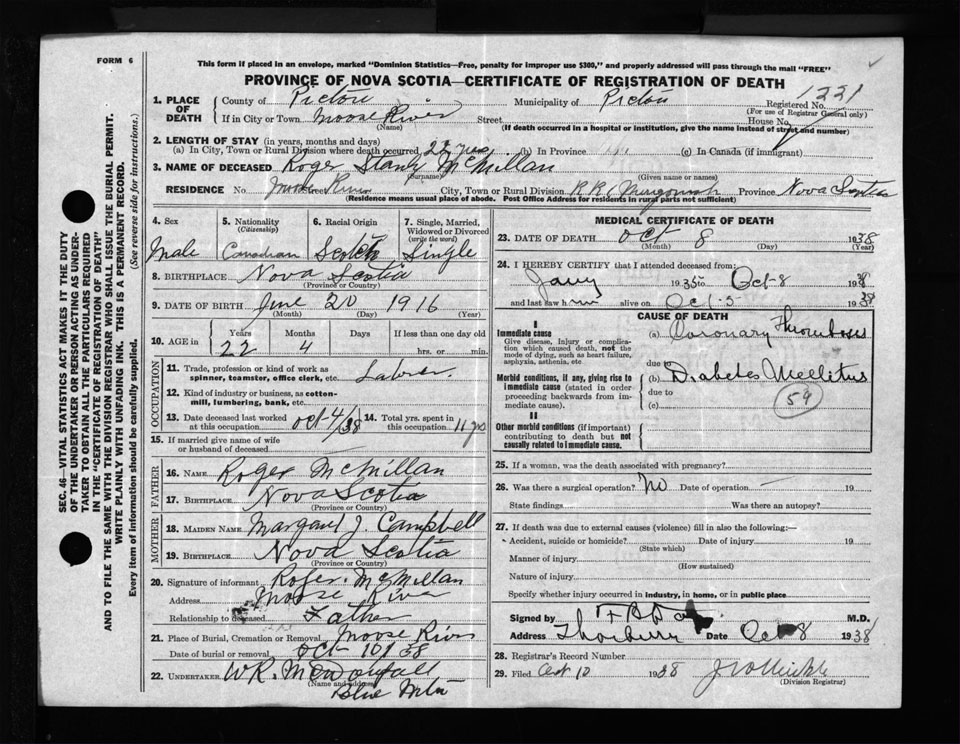 FORM 6
This form if placed in an envelope, marked "Dominion Statistics—Free, penalty for improper use $300," and properly addressed will pass through the mail "FREE"
PROVINCE OF NOVA SCOTIA—CERTIFICATE OF REGISTRATION OF DEATH
1331
Registered No.
(For use of Registrar General only)
1. PLACE OF DEATH
County of Pictou Municipality of Pictou
If in City or Town Moose River Street House No.
(Name) (If death occurred in a hospital or institution, give the name instead of street and number)
2. LENGTH OF STAY (in years, months and days)
(a) In City, Town or Rural Division where death occurred 22 yrs (b) In Province (c) In Canada (if immigrant)
3. NAME OF DECEASED Roger Stanly McMillan
(Surname) (Given name or names)
RESIDENCE No. Moose River City, Town or Rural Division R R 1 Merigomish Province Nova Scotia
(Residence means usual place of abode. Post Office Address for residents in rural parts not sufficient)
4. Sex
Male
5. Nationality
(Citizenship)
Canadian
6. Racial Origin
Scotch
7. Single, Married, Widowed or Divorced
(write the word)
Single
8. BIRTHPLACE Nova Scotia
(Province or Country)
9. DATE OF BIRTH June 20 1916
(Month) (Day) (Year)
10. AGE in Years Months Days If less than one day old
22 4 hrs. or min.
OCCUPATION
11. Trade, profession or kind of work as spinner, teamster, office clerk, etc. Labrer.
12. Kind of industry or business, as cotton-mill, lumbering, bank, etc.
13. Date deceased last worked at this occupation Oct 4/38
14. Total yrs. spent in this occupation 11 yrs
15. If married give name of wife or husband of deceased
FATHER
16. NAME Roger McMillan
17. BIRTHPLACE Nova Scotia
(Province or Country)
MOTHER
18. MAIDEN NAME Margaret J. Campbell
19. BIRTHPLACE Nova Scotia
(Province or Country)
20. Signature of informant Roger McMillan
Address Moose River
Relationship to deceased Father
21. Place of Burial, Cremation or Removal Moose River
Date of burial or removal Oct 10/38
22. UNDERTAKER W R. McDowall
(Name and address)
Blue Mtn
MEDICAL CERTIFICATE OF DEATH
23. DATE OF DEATH Oct 8 1938
(Month) (Day) (Year)
24. I HEREBY CERTIFY that I attended deceased from:
Jany 1935 to Oct-8 1938
and last saw him alive on Oct-5- 1938
CAUSE OF DEATH
I
Immediate cause
Give disease, injury or complication which caused death, not the mode of dying, such as heart failure, asphyxia, asthenia, etc
(a) Coronary Thrombosis
due to
Morbid conditions, if any, giving rise to immediate cause (stated in order proceeding backwards from immediate cause).
(b) Diabetes Mellitus
due to
(c)
59
II
Other morbid conditions (if important) contributing to death but not causally related to immediate cause.
25. If a woman, was the death associated with pregnancy?
26. Was there a surgical operation? No Date of operation 19
State findings Was there an autopsy?
27. If death was due to external causes (violence) fill in also the following:—
Accident, suicide or homicide? Date of injury 19
(State which)
Manner of injury
(How sustained)
Nature of injury
Specify whether injury occurred in industry, in home, or in public place
Signed by M.D.
Address Thorburn Date Oct 8 1938
28. Registrar's Record Number
29. Filed Oct 10 1938
(Division Registrar)
SEC. 46—VITAL STATISTICS ACT MAKES IT THE DUTY
OF THE UNDERTAKER OR PERSON ACTING AS UNDER-
TAKER TO OBTAIN ALL THE PARTICULARS REQUIRED
IN THE "CERTIFICATE OF REGISTRATION OF DEATH"
AND TO FILE THE SAME WITH THE DIVISION REGISTRAR WHO SHALL ISSUE THE BURIAL PERMIT.
WRITE PLAINLY WITH UNFADING INK. THIS IS A PERMANENT RECORD.
Every item of information should be carefully supplied. (See reverse side for instructions.)